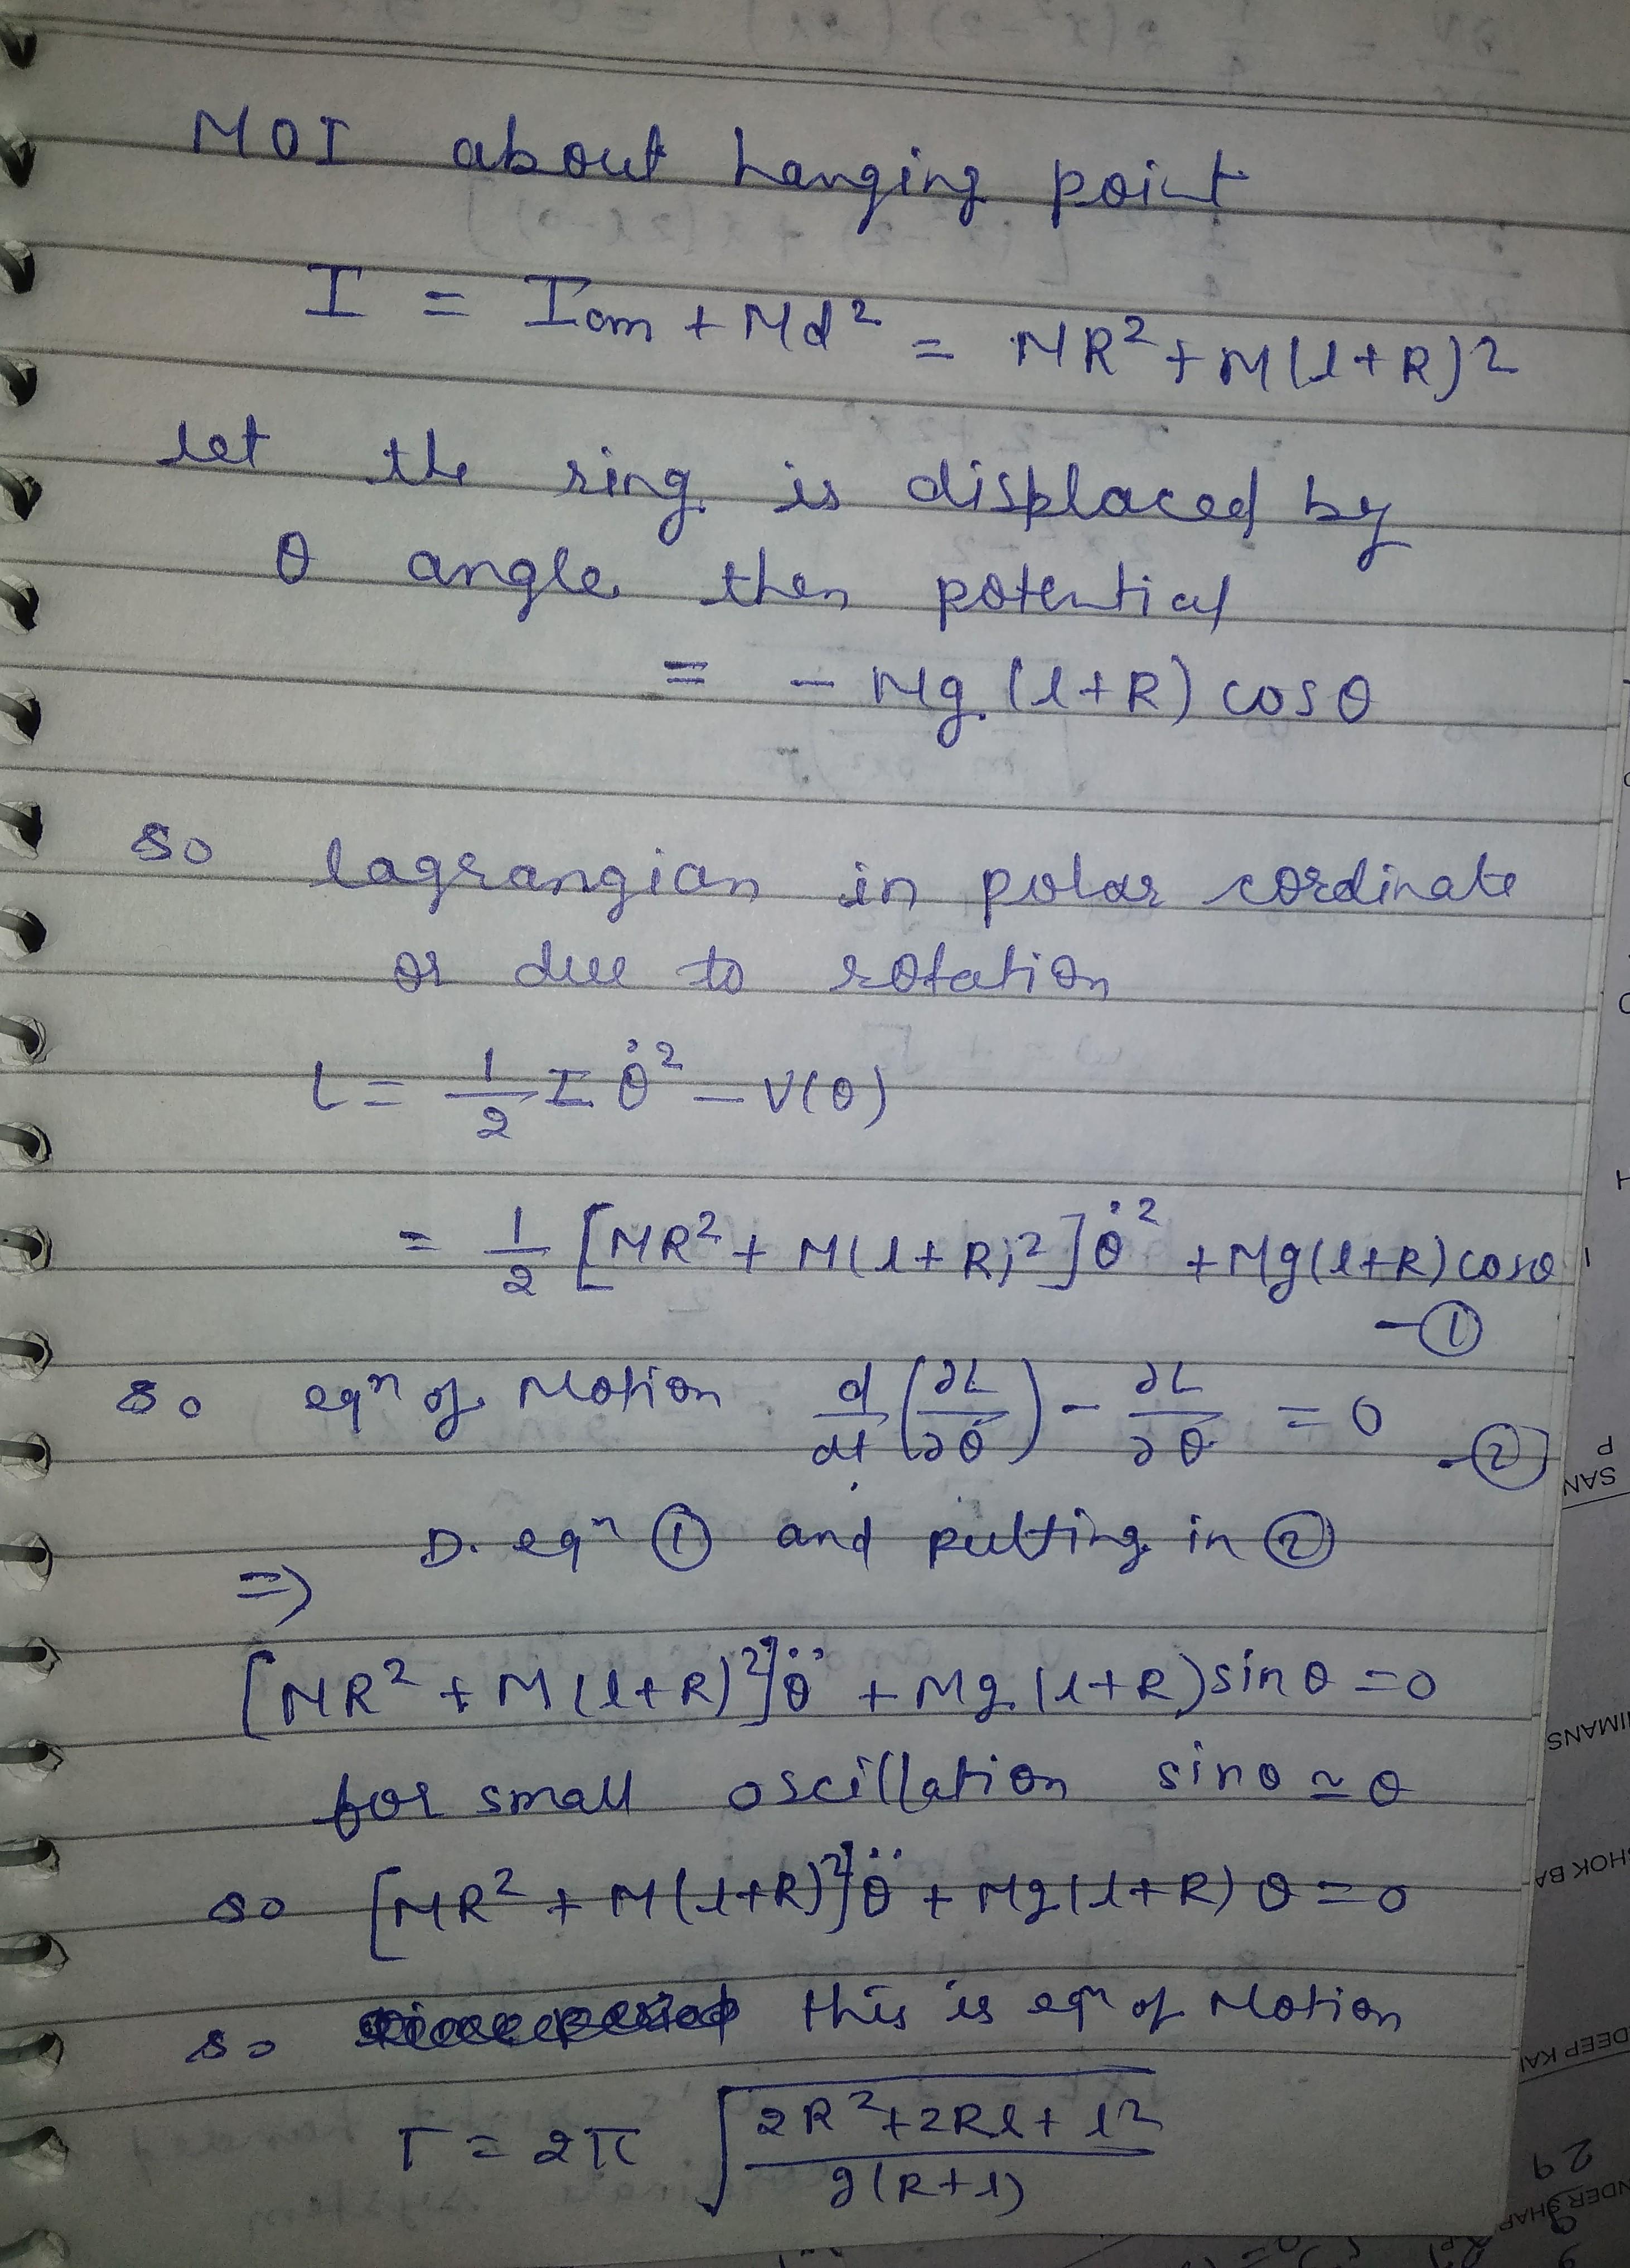 MOI about hanging point
I = Icm + Md² = MR² + M(l+R)2
let the ring is displaced by
θ angle then potential
= - Mg (l+R) cosθ
so lagrangian in polar cordinate
or due to rotation
L = 1/2 I θ̇² - V(θ)
= 1/2 [MR² + M(l+R)²] θ̇² + Mg(l+R) cosθ
- ①
so eqⁿ of Motion d/dt (∂L/∂θ̇) - ∂L/∂θ = 0 - ②
D. eqⁿ ① and putting in ②
⇒
[MR² + M(l+R)²] θ̈ + Mg (l+R) sinθ = 0
for small oscillation sinθ ≃ θ
so [MR² + M(l+R)²] θ̈ + Mg(l+R) θ = 0
so this is eqⁿ of Motion
T = 2π √(2R² + 2Rl + l² / g(R+l))
SAN
DEEP KA
29